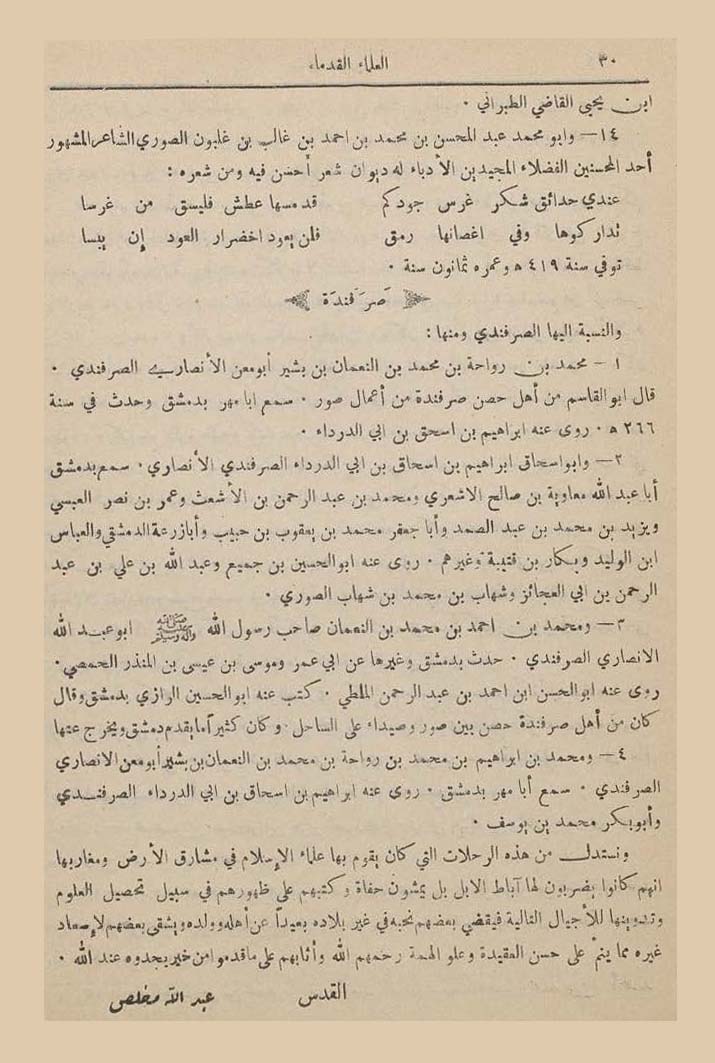 ٣٠ العلماء القدماء
ابن يحيى القاضي الطبراني ٠
١٤ — وابو محمد عبد المحسن بن محمد بن احمد بن غالب بن غلبون الصوري الشاعر المشهور
أحد المحسنين الفضلاء المجيدين الأدباء له ديوان شعر أحسن فيه ومن شعره :
عندي حدائق شكر غرس جودكم قد مسها عطش فليسق من غرسا
تداركوها وفي اغصانها رمق فلن يعود اخضرار العود إن يبسا
توفي سنة ٤١٩ ه وعمره ثمانون سنة ٠
صَرَفَندَة
والنسبة اليها الصرفندي ومنها :
١ — محمد بن رواحة بن محمد بن النعمان بن بشير أبو معن الأنصاري الصرفندي ٠
قال ابو القاسم من أهل حصن صرفندة من أعمال صور ٠ سمع ابا مهر بدمشق وحدث في سنة
٢٦٦ ه ٠ روى عنه ابراهيم بن اسحق بن ابي الدرداء ٠
٢ — وابو اسحاق ابراهيم بن اسحاق بن ابي الدرداء الصرفندي الأنصاري ٠ سمع بدمشق
أبا عبد الله معاوية بن صالح الاشعري ومحمد بن عبد الرحمن بن الأشعث وعمر بن نصر العبسي
ويزيد بن محمد بن عبد الصمد وأبا جعفر محمد بن يعقوب بن حبيب وأبا زرعة الدمشقي والعباس
ابن الوليد وبكار بن قتيبة وغيرهم ٠ روى عنه ابو الحسين بن جميع وعبد الله بن علي بن عبد
الرحمن بن ابي العجائز وشهاب بن محمد بن شهاب الصوري ٠
٣ — ومحمد بن احمد بن محمد بن النعمان صاحب رسول الله ﷺ ابو عبد الله
الانصاري الصرفندي ٠ حدث بدمشق وغيرها عن ابي عمر وموسى بن عيسى بن المنذر الحمصي ٠
روى عنه ابو الحسن ابن احمد بن عبد الرحمن الملطي ٠ كتب عنه ابو الحسين الرازي بدمشق وقال
كان من أهل صرفندة حصن بين صور وصيداء على الساحل ٠ وكان كثيراً ما يقدم دمشق ويخرج عنها
٤ — ومحمد بن ابراهيم بن محمد بن رواحة بن محمد بن النعمان بن بشير أبو معن الانصاري
الصرفندي ٠ سمع أبا مهر بدمشق ٠ روى عنه ابراهيم بن اسحاق بن ابي الدرداء الصرفندي
وأبو بكر محمد بن يوسف ٠
ونستدل من هذه الرحلات التي كان يقوم بها علماء الإسلام في مشارق الأرض ومغاربها
انهم كانوا يضربون لها آباط الابل بل يمشون حفاة وكتبهم على ظهورهم في سبيل تحصيل العلوم
وتدوينها للأجيال التالية فيقضي بعضهم نحبه في غير بلاده بعيداً عن أهله وولده ويشقى بعضهم لإسعاد
غيره مما ينمّ على حسن العقيدة وعلو الهمة رحمهم الله وأثابهم على ما قدموا من خير يجدوه عند الله ٠
القدس عبد الله مخلص